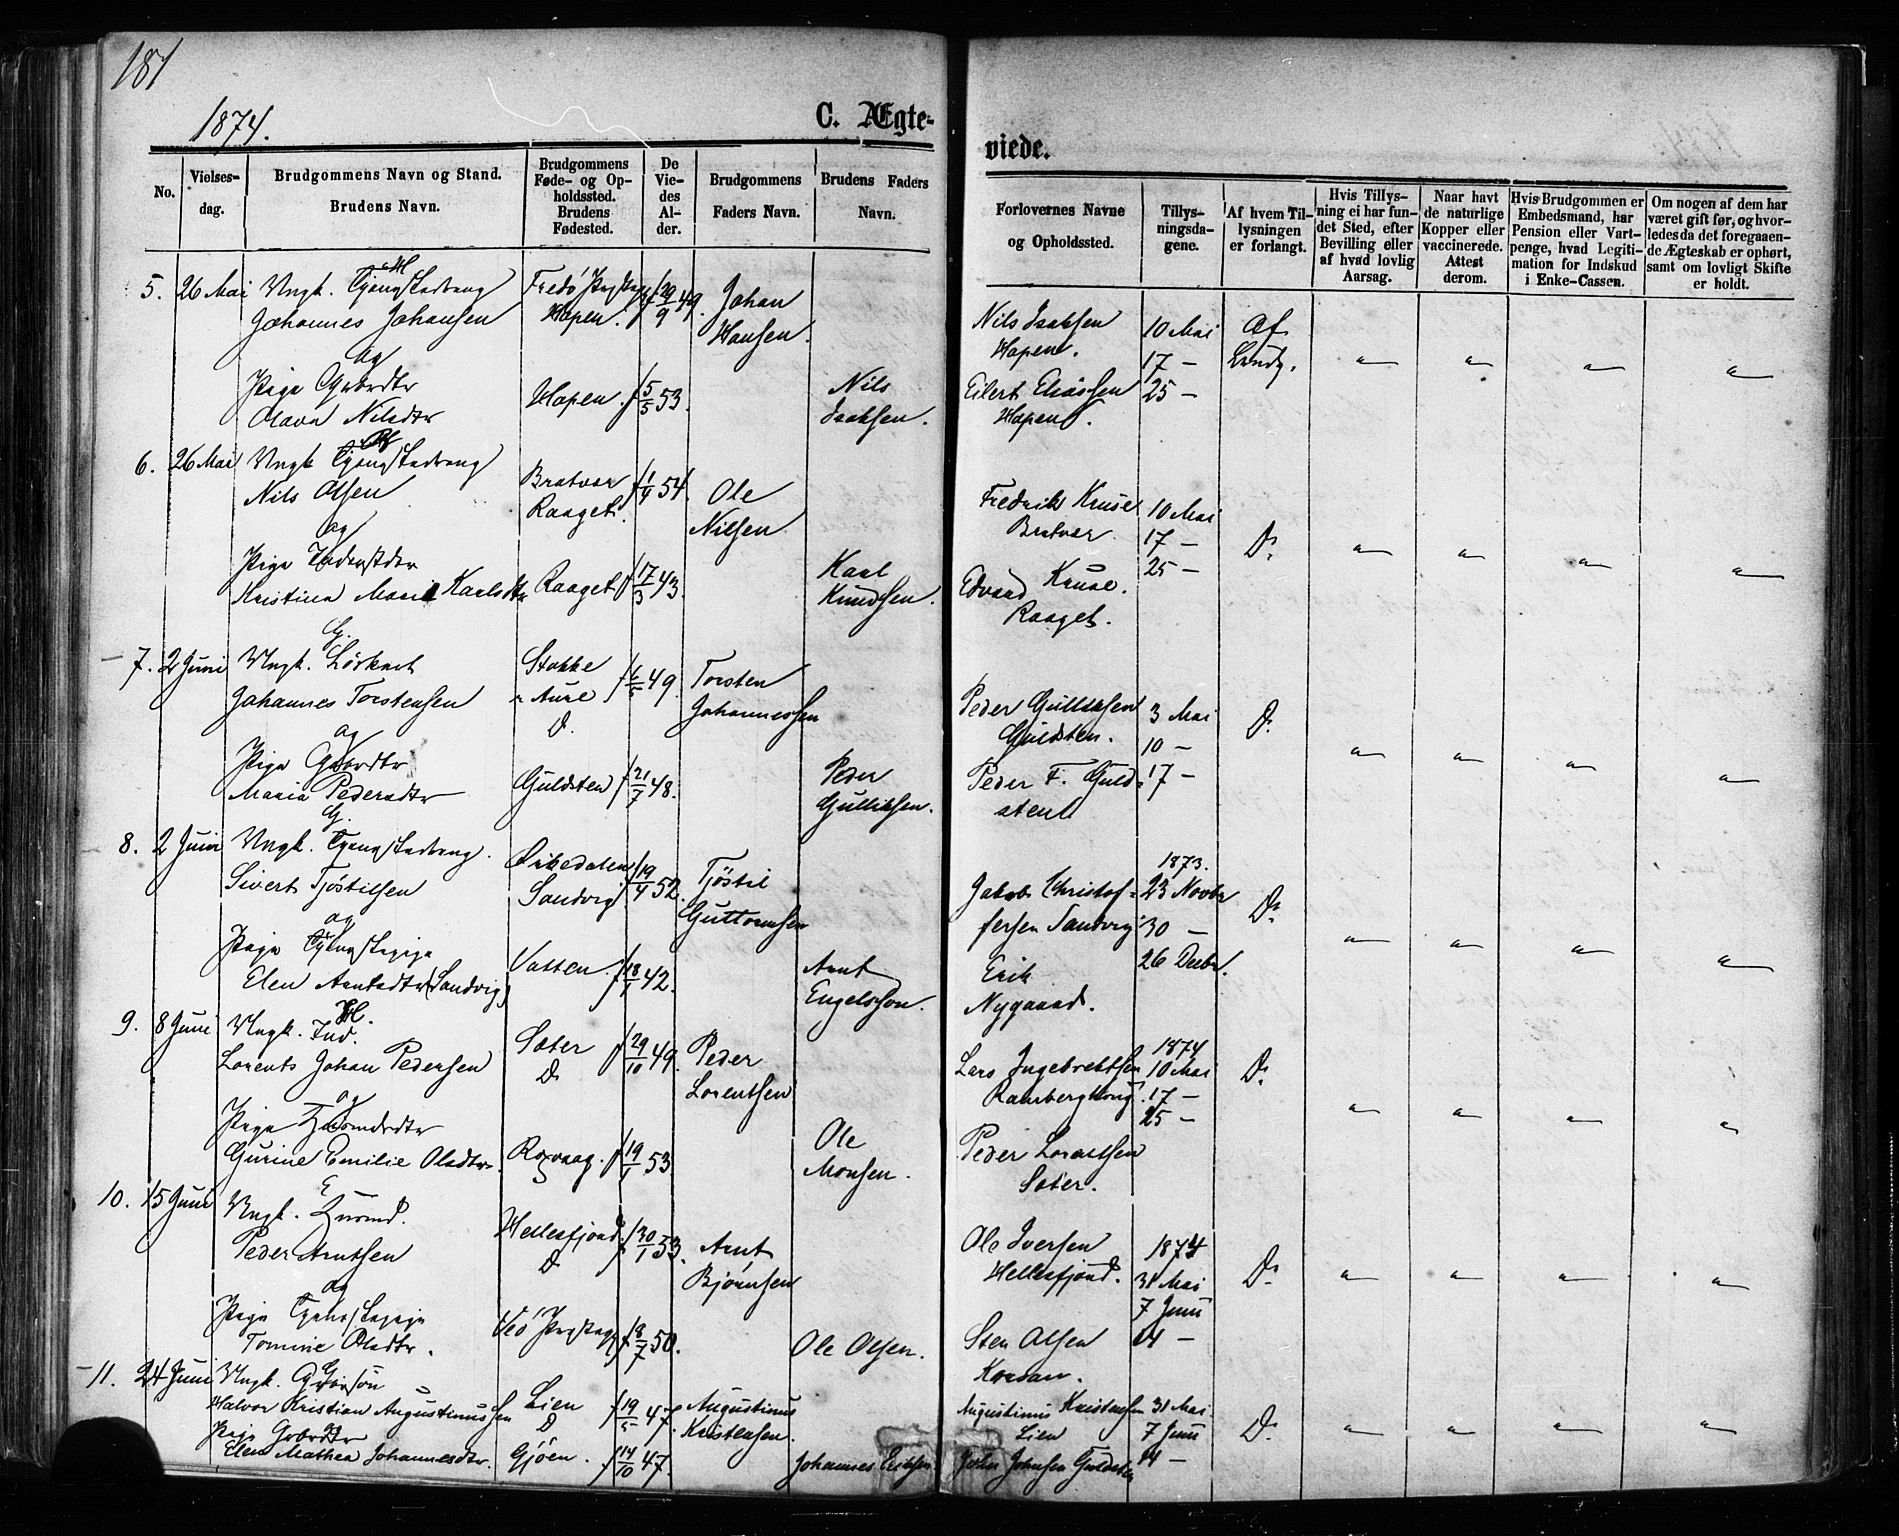 181
1874.
C. Ægte-
viede.
No.
Vielses-
dag.
Brudgommens Navn og Stand.
Brudens Navn.
Brudgommens
Føde- og Op-
holdssted.
Brudens
Fødested.
De
Vie-
des
Al-
der.
Brudgommens
Faders Navn.
Brudens Faders
Navn.
Forlovernes Navne
og Opholdssted.
Tillys-
ningsda-
gene.
Af hvem Til-
lysningen
er forlangt.
Hvis Tillys-
ning ei har fun-
det Sted, efter
Bevilling eller
af hvad lovlig
Aarsag.
Naar havt
de naturlige
Kopper eller
vaccinerede.
Attest
derom.
Hvis Brudgommen er
Embedsmand, har
Pension eller Vart-
penge, hvad Legiti-
mation for Indskud
i Enke-Cassen.
Om nogen af dem har
været gift før, og hvor-
ledes da det foregaaen-
de Ægteskab er ophørt,
samt om lovligt Skifte
er holdt.
5. 26 Mai Ungk.
Johannes Johansen
og
Pige Gbrdtr
Olava Nilsdtr
Hopen.
f 29/9 49.
Johan
Hansen.
Hopen. f 5/5 53.
Nils
Isaksen.
Nils Isaksen
Hopen.
Eilert Eliassen
Hopen.
10 Mai
17 —
25 —
Af
Brudg.
" " " "
6. 26 Mai Ungk
Nils Olsen
og
Pige
Kristina Marie Karlsdtr
Bratvær
Raaget.
f 1/4 54.
Ole
Nilsen
Raaget f 17/3 43.
Karl
Knudsen.
Fredrik Kruse
Bratvær.
Edvard Kruse.
Raaget.
10 Mai
17 —
25 —
Do
" " " "
G.
7. 2 Juni Ungk. Løskarl
Johannes Torstensen
og
Pige Gbrdtr
Maria Pedersdtr
Stokke
i Aure
D.
f 6/5 49.
Torsten
Johannessen
Guldsten f 21/7 48.
Peder
Gulliksen.
Peder Gulliksen
Guldsten.
Peder F. Guld-
sten
3 Mai
10 —
17 —
Do
" " " "
G.
8. 2 Juni Ungk.
Sivert Tjøstilsen
og
Pige Tjenestepige
Elen Arntsdtr (Sandvig)
Orkedalen
Sandvig
f 19/4 52.
Tjøstil
Guttormsen
Vatten. f 18/1 42.
Arnt
Engelsson.
Jakob Christof-
fersen Sandvig
Erik
Nygaard.
1873.
23 Novbr
30 —
26 Decbr.
Do
" " " "
H.
9. 8 Juni Ungk. Ind.
Lorents Johan Pedersen
og
Pige Husmdsdtr
Gurine Emilie Olsdtr.
Sæter
D
f 29/10 49.
Peder
Lorentsen
Roxvaag. f 19/1 53
Ole
Monsen.
Lars Ingebrektsen
Peder Lorentsen
Sæter.
1874
10 Mai
17 —
25 —
Do
" " " "
E
10. 15 Juni Ungk. Husmd.
Peder Arntsen
og
Pige Tjenestepige
Tomine Olsdtr.
Hellesfjord
D
f 30/1 53.
Arnt
Bjørnsen
f 8/7 50.
Ole Olsen.
Ole Iversen
Hellesfjord.
Sten Olsen
1874
31 Mai
7 Juni
14 —
Do
" " " "
G
11. 24 Juni Ungk. Gbrsøn
Halvor Kristian Augustinussen
Pige Gbrdtr
Elen Mathea Johannesdtr.
Lien
D
f 19/5 47.
Augustinus
Kristensen.
Gjøen. f 14/10 47.
Johannes Eriksen
Augustinus Kristensen
Lien
John Johnsen Guldsten
31 Mai
7 Juni
14 —
Do
" " " "